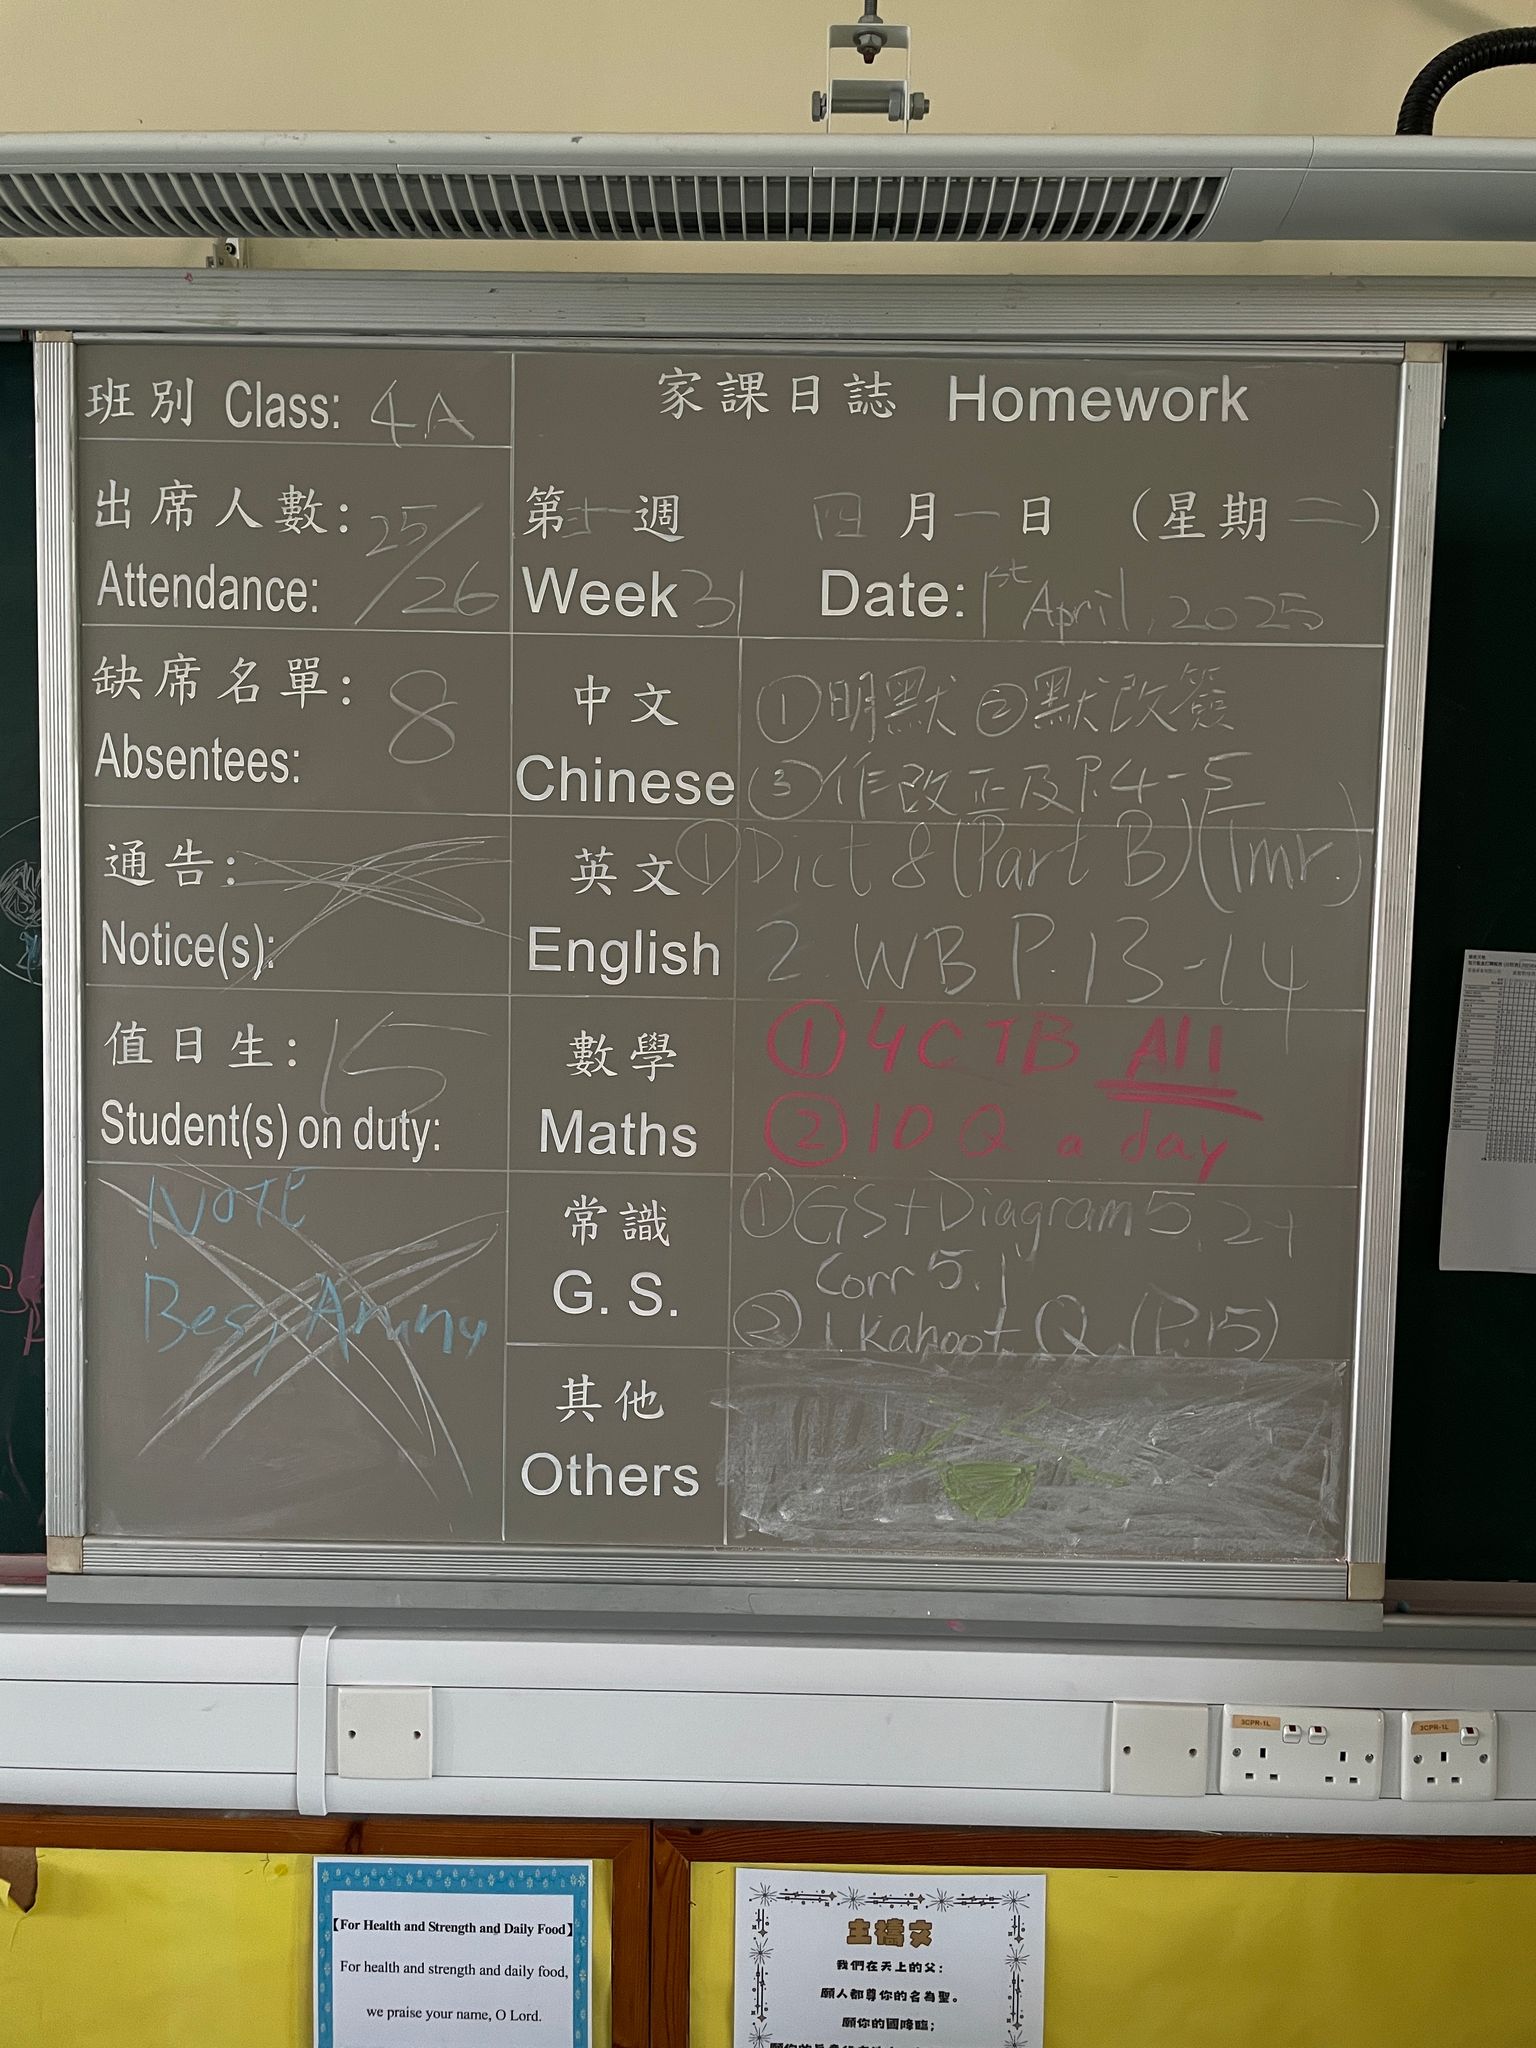 班別 Class: 4A
出席人數: 25/26
Attendance:
缺席名單: 8
Absentees:
通告:
Notice(s):
值日生: 15
Student(s) on duty:
NOTE
家課日誌 Homework
第卅一週 四月一日 (星期二)
Week 31 Date: 1st April, 2025
中文 ①明默 ②默改簽
Chinese ③作改正及P.4-5
英文 ①Dict 8 (Part B) (Tmr.)
English 2 WB P.13-14
數學 ① 4C TB All
Maths ② 10 Q a day
常識 ①GS+Diagram 5.2
Corr 5.1
G. S. ② 1 Kahoot Q (P.15)
其他
Others
3CPR-1L
3CPR-1L
【For Health and Strength and Daily Food】
For health and strength and daily food,
we praise your name, O Lord.
主禱文
我們在天上的父：
願人都尊你的名為聖。
願你的國降臨；